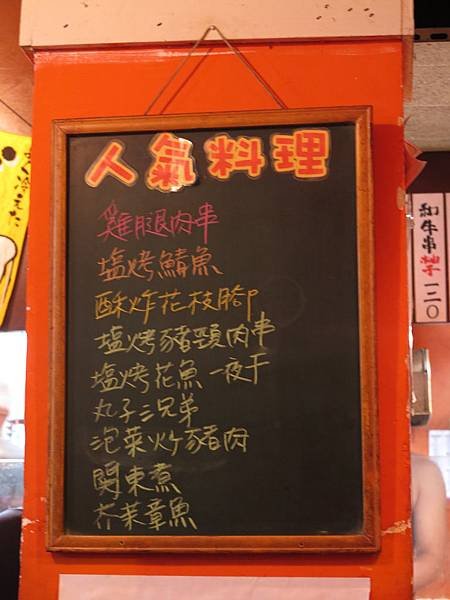 人氣料理
雞腿肉串
塩烤鯖魚
酥炸花枝腳
塩烤豬頸肉串
塩烤花魚一夜干
丸子三兄弟
泡菜炒豬肉
関東煮
芥茉章魚
和牛串
一二〇
く冷えた